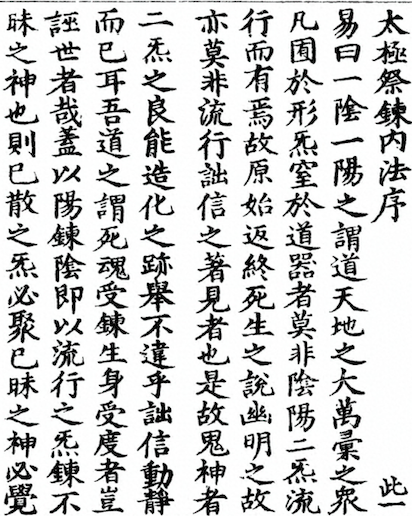 太極祭鍊內法序
此一
易曰一陰一陽之謂道天地之大萬彙之衆
凡囿於形炁窒於道器者莫非陰陽二炁流
行而有焉故原始返終死生之說幽明之故
亦莫非流行詘信之著見者也是故鬼神者
二炁之良能造化之跡舉不違乎詘信動靜
而已耳吾道之謂死魂受鍊生身受度者豈
誣世者哉蓋以陽鍊陰即以流行之炁鍊不
昧之神也則已散之炁必聚已昧之神必覺